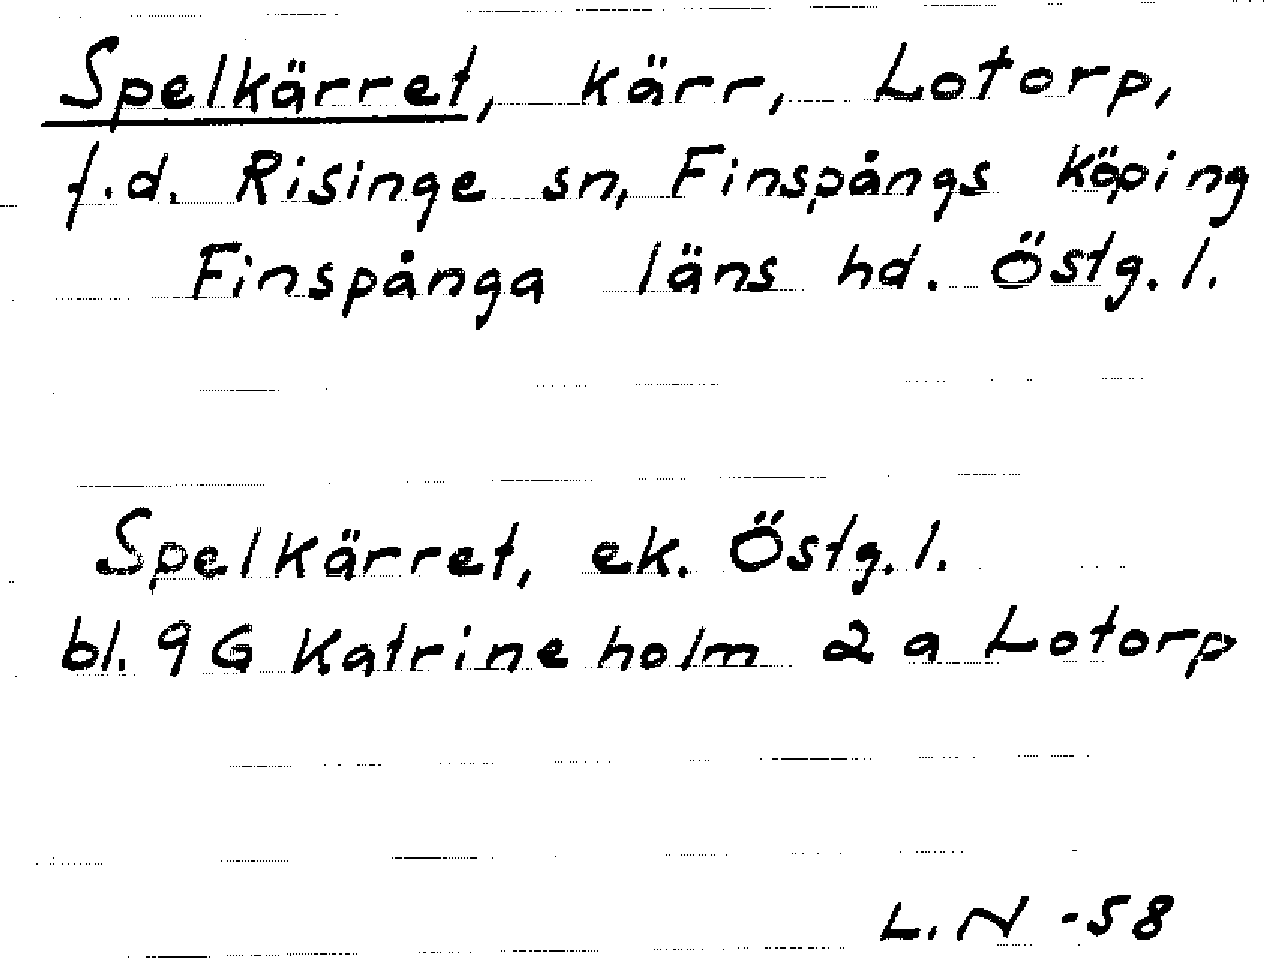 Spelkärret, kärr, Lotorp,
f.d. Risinge sn, Finspångs köping
Finspånga läns hd. Östg. l.
Spelkärret, ek. Östg. l.
bl. 9 G Katrineholm 2 a Lotorp
L. N -58